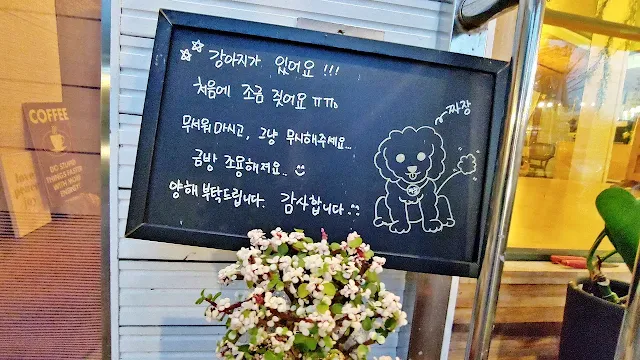 ☆☆ 강아지가 있어요 !!!
처음에 조금 짖어요 ㅠㅠ。
무서워 마시고, 그냥 무시해주세요...
금방 조용해져요.. ☺
양해 부탁드립니다. 감사합니다 ^^
짜장
COFFEE
DO STUPID
THINGS FASTER
WITH MORE
ENERGY